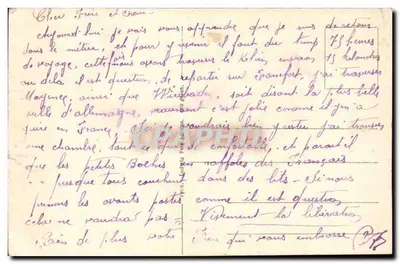 Cher Frère et
Aujourd'hui je vais vous apprendre que je suis de retour
dans le métier, et pour y arriver il faut du temps 75 heures
de voyage, cette fois nous avons traversé le Rhin, environ 15 kilomètres
au delà il est question de repartir sur Francfort, j'ai traversé
Mayence, ainsi que Wiesbade, soit disant la plus belle
ville d'allemagne, vraiment c'est jolie comme il y en a
peu en France, je voudrais bien y rester j'ai trouvé
une chambre, tout ce que de confortable, et parait il
que les petites Boches en raffoles des Français
presque tous couchent dans des lits. Si nous
prenons les avants postes comme il est question
cela ne vaudra pas = Vivement la libération
Rien de plus votre Frère qui vous embrasse